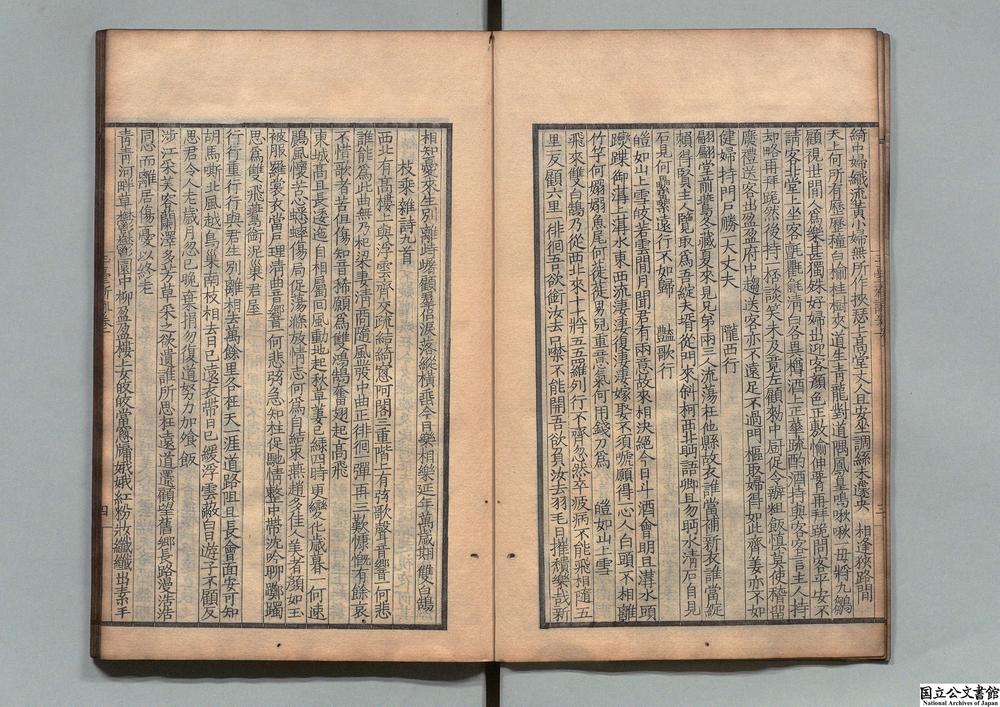 綺中婦織流黃小婦無所作挾瑟上高堂丈人且安坐調絲未遽央　相逢狹路間
天上何所有歷歷種白榆桂樹夾道生青龍對道隅鳳皇鳴啾啾一母將九鶵
顧視世間人為樂甚獨殊好婦出迎客顏色正敷愉伸要再拜跪問客平安不
請客北堂上坐客氈氍毹清白各異樽酒上正華疏酌酒持與客客言主人持
却略再拜跪然後持一杯談笑未及竟左顧勑中厨促令辦粗飯慎莫使稽留
廢禮送客出盈盈府中趨送客亦不遠足不過門樞取婦得如此齊姜亦不如
健婦持門戶勝一大丈夫　隴西行
翩翩堂前鷰冬藏夏來見兄弟兩三人流蕩在他縣故衣誰當補新衣誰當綻
賴得賢主人覽取為吾綻夫壻從門來斜柯西北眄語卿且勿眄水清石自見
石見何纍纍遠行不如歸　豔歌行
皚如山上雪皎若雲間月聞君有兩意故來相決絕今日斗酒會明旦溝水頭
蹀躞御溝上溝水東西流淒淒復淒淒嫁娶不須啼願得一心人白頭不相離
竹竿何嫋嫋魚尾何簁簁男兒重意氣何用錢刀為　皚如山上雪
飛來雙白鵠乃從西北來十十將五五羅列行不齊忽然卒疲病不能飛相隨五
里一反顧六里一徘徊吾欲銜汝去口噤不能開吾欲負汝去羽毛日摧頹樂哉新
相知憂來生別離峙𨄔顧羣侶淚落縱橫垂今日樂相樂延年萬歲期　雙白鵠
枚乘雜詩九首
西北有高樓上與浮雲齊交疏結綺窻阿閣三重階上有弦歌聲音響一何悲
誰能為此曲無乃杞梁妻清商隨風發中曲正徘徊一彈再三歎慷慨有餘哀
不惜歌者苦但傷知音稀願為雙鴻鵠奮翅起高飛
東城高且長逶迤自相屬回風動地起秋草萋已綠四時更變化歲暮一何速
鷐風懷苦心蟋蟀傷局促蕩滌放情志何為自結束燕趙多佳人美者顏如玉
被服羅裳衣當戶理清曲音響一何悲弦急知柱促馳情整中帶沈吟聊躑躅
思為雙飛鷰銜泥巢君屋
行行重行行與君生別離相去萬餘里各在天一涯道路阻且長會面安可知
胡馬嘶北風越鳥巢南枝相去日已遠衣帶日已緩浮雲蔽白日遊子不顧反
思君令人老歲月忽已晚棄捐勿復道努力加飡飯
涉江采芙蓉蘭澤多芳草采之欲遺誰所思在遠道還顧望舊鄉長路漫浩浩
同心而離居傷憂以終老
青青河畔草鬱鬱園中柳盈盈樓上女皎皎當窻牖娥娥紅粉妝纖纖出素手
四
国立公文書館
National Archives of Japan